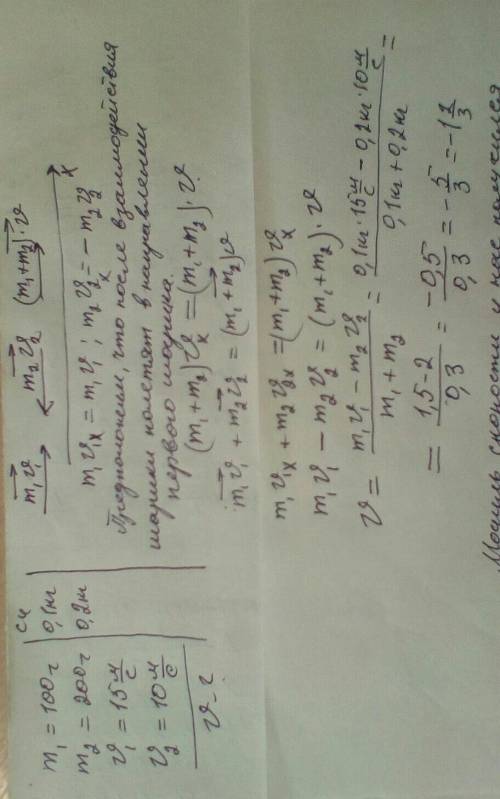 m₁ = 100г
m₂ = 200г
ϑ₁ = 15 м/с
ϑ₂ = 10 м/с
ϑ - ?
СИ
0,1кг
0,2кг
m₁ϑ₁ m₂ϑ₂ (m₁+m₂)·ϑ
x
m₁ϑ₁x = m₁ϑ₁; m₂ϑ₂x = - m₂ϑ₂
Предположим, что после взаимодействия
шарики полетят в направлении
первого шарика.
(m₁+m₂)ϑx = (m₁+m₂)·ϑ.
m₁ϑ₁ + m₂ϑ₂ = (m₁+m₂)ϑ
m₁ϑ₁x + m₂ϑ₂x = (m₁+m₂)ϑx
m₁ϑ₁ - m₂ϑ₂ = (m₁+m₂)·ϑ
ϑ = (m₁ϑ₁ - m₂ϑ₂)/(m₁+m₂) = (0,1кг·15 м/с - 0,2кг·10 м/с)/(0,1кг+0,2кг) =
= (1,5-2)/0,3 = -0,5/0,3 = -5/3 = -1 2/3
скорости у нас получился